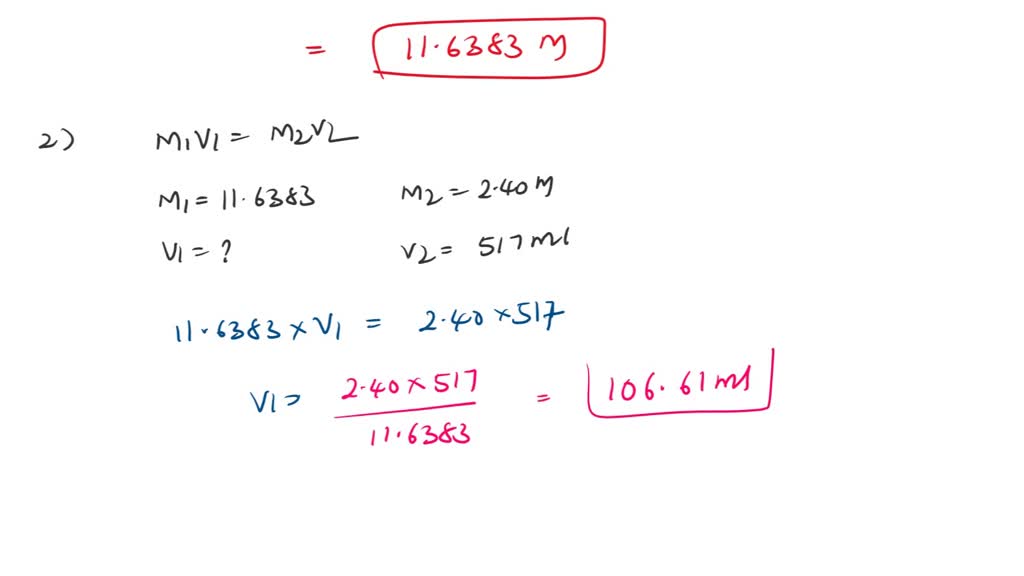 = 11.6383 M
2) M1V1 = M2V2
M1 = 11.6383 M2 = 2.40 M
V1 = ? V2 = 517 ml
11.6383 × V1 = 2.40 × 517
V1 = 2.40 × 517 / 11.6383 = 106.61 ml